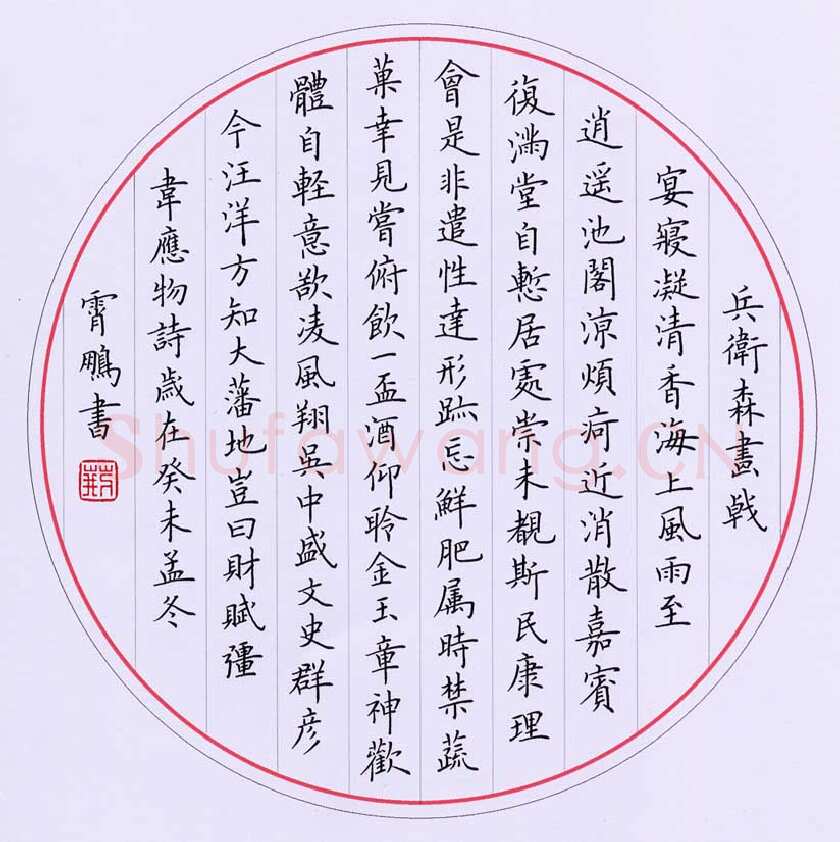 兵衛森畫戟
宴寢凝清香海上風雨至
逍遥池閣涼煩疴近消散嘉賓
復滿堂自慙居處崇未覩斯民康理
會是非遣性達形跡忘鮮肥属時禁蔬
菓幸見嘗俯飲一盃酒仰聆金玉章神歡
體自軽意欲凌風翔吳中盛文史群彦
今汪洋方知大藩地豈曰財賦彊
韋應物詩歲在癸未孟冬
霄鵬書
Shufawang.CN